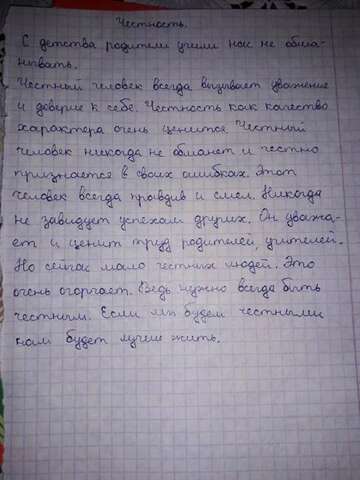 Честность.
С детства родители учили нас не обма-
нывать.
Честный человек всегда вызывает уважение
и доверие к себе. Честность как качество
характера очень ценится Честный
человек никогда не обманет и честно
признается в своих ошибках. Этот
человек всегда правдив и смел. Никогда
не завидует успехам других. Он уважа-
ет и ценит труд родителей, учителей.
Но сейчас мало честных людей. Это
очень огорчает. Ведь нужно всегда быть
честным. Если мы будем честными
нам будет лучше жить.